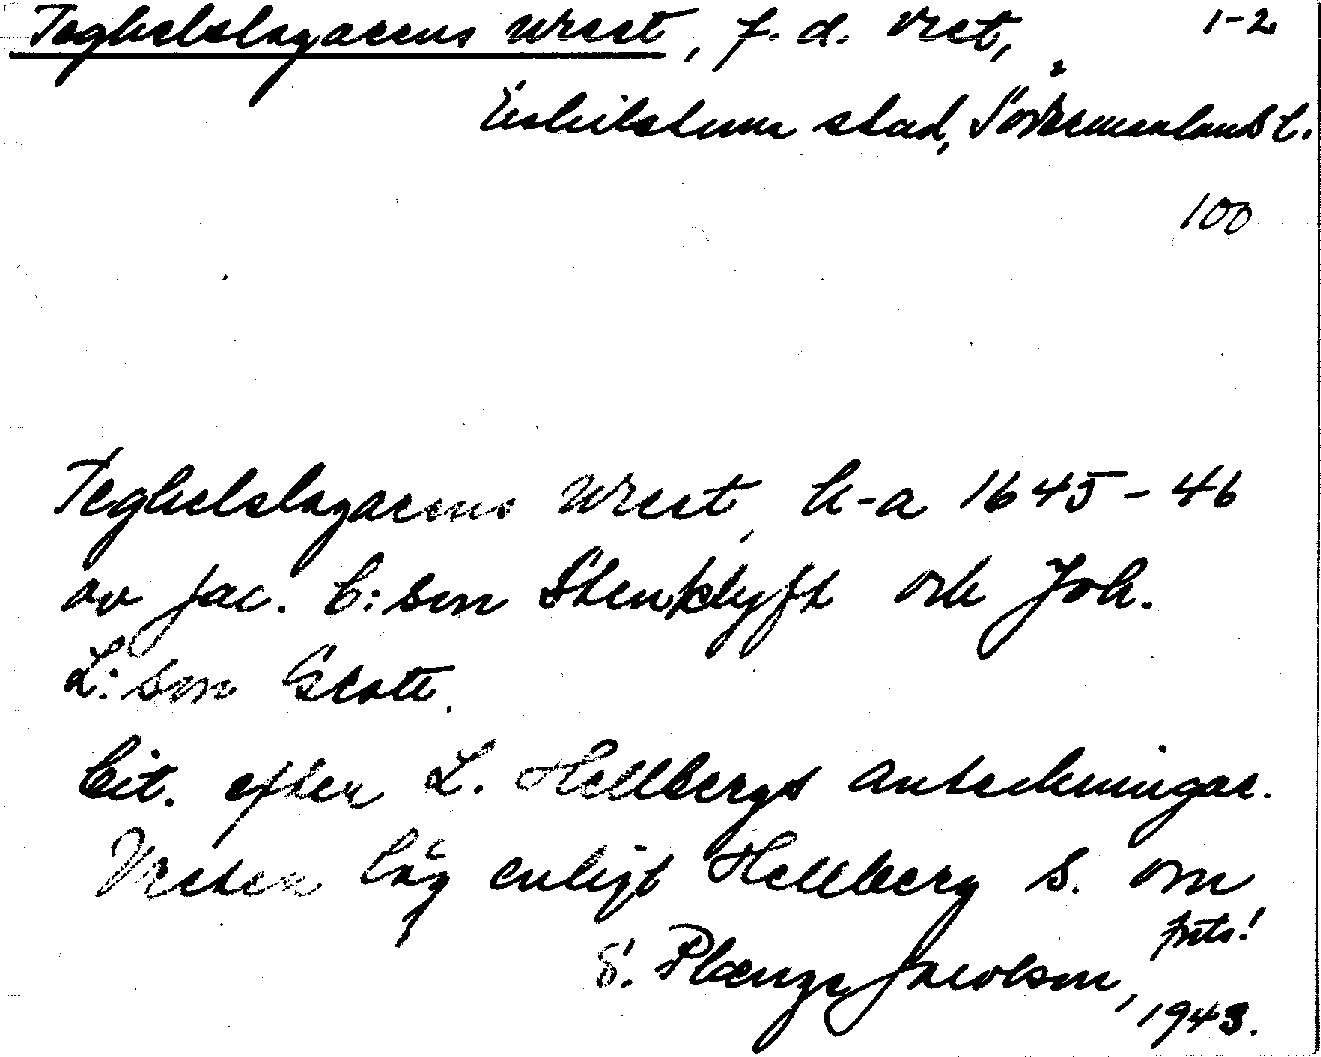 Teghelslagarens wreet, f. d. vret, 1-2
Eskilstuna stad, Södermanlands l.
100
Teghelslagarens wreet, k-a 1645-46
av Jac. C:son Stenklyft och Joh.
L:son Gcott.
Cit. efter L. Hellbergs anteckningar.
Vreten låg enligt Hellberg S. om
forts!
S. Plænge Jacobson, 1943.